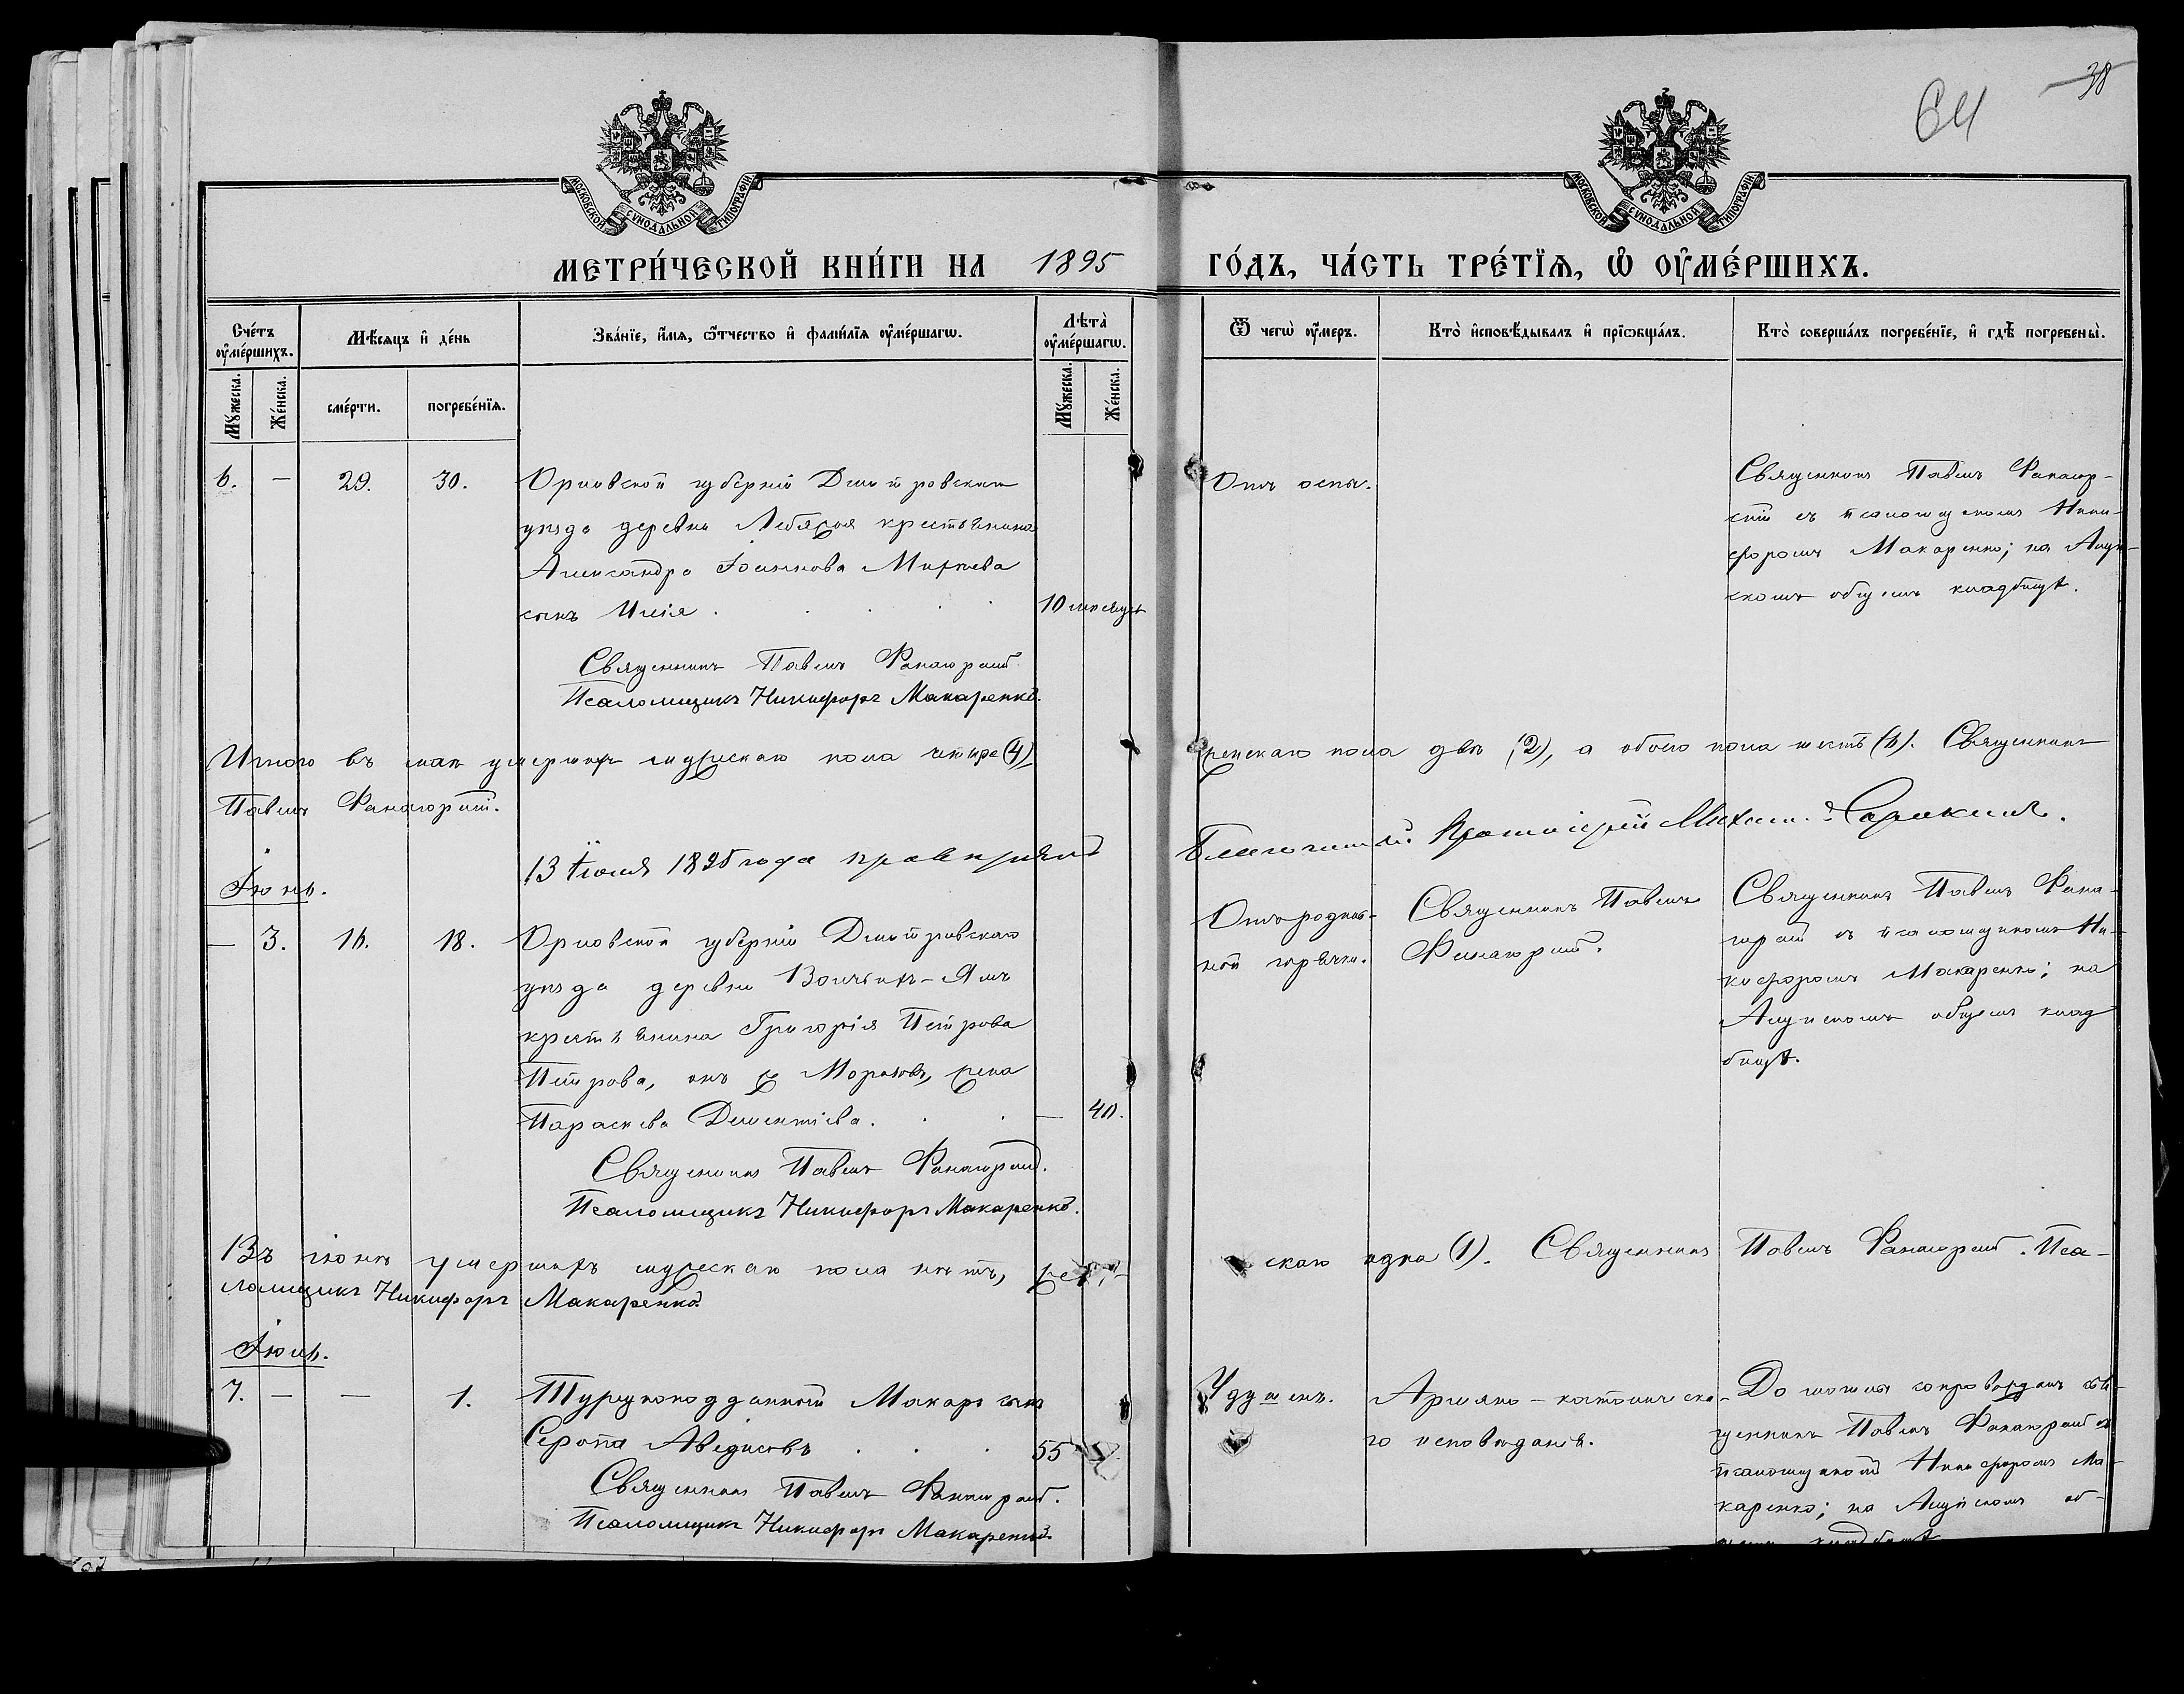 38
64
МОСКОВСКОЙ СѴНОДАЛЬНОЙ ТИПОГРАФІИ
МОСКОВСКОЙ СѴНОДАЛЬНОЙ ТИПОГРАФІИ
МЕТРИ́ЧЕСКОЙ КНИ́ГИ НА 1895
ГО́ДЪ, ЧА́СТЬ ТРЕ́ТЇѦ, Ѡ҆ ОУ҆МЕ́РШИХЪ.
Сче́тъ оу҆ме́ршихъ.
Мꙋ́жеска.
Же́нска.
Мѣ́сяцъ и҆ де́нь
сме́рти.
погребе́нїѧ.
Зва́нїе, и҆́мѧ, ѻ҆́тчество и҆ фами́лїѧ оу҆ме́ршагѡ.
Лѣта̀ оу҆ме́ршагѡ.
Мꙋ́жеска.
Же́нска.
Ѿ чегѡ̀ оу҆́меръ.
Кто̀ и҆сповѣ́дывалъ и҆ прїѡбща́лъ.
Кто̀ соверша́лъ погребе́нїе, и҆ гдѣ̀ погребены̀.
6. — 29. 30.
Орловской губерніи Дмитровскаго
уѣзда деревни Лебяжья крестьянина
Александра Іоаннова
сынъ Илія . . . . 10 мѣсяцев
Священникъ Павелъ Фанагорскій
Псаломщикъ Никифоръ Макаренко.
Отъ оспы.
Священникъ Павелъ Фанагор-
скій съ псаломщикомъ Ники-
форомъ Макаренко; на
скомъ общемъ кладбищѣ.
Итого въ маѣ умершихъ мужескаго пола четыре (4),
женскаго пола двѣ (2), а обоего пола шесть (6). Священникъ
Павелъ Фанагорскій.
13 Іюля 1895 года провѣрялъ
Благочинный Протоіерей
Іюнь.
— 3. 16. 18.
Орловской губерніи Дмитровскаго
уѣзда деревни Волчьихъ-Ямъ
крестьянина Григорія Петрова
Петрова, онъ же Морозовъ, жена
Параскева Дементіева. . . — 40.
Священникъ Павелъ Фанагорскій.
Псаломщикъ Никифоръ Макаренко.
Отъ родиль-
ной горячки.
Священникъ Павелъ
Фанагорскій.
Священникъ Павелъ Фана-
горскій съ псаломщикомъ Ни-
кифоромъ Макаренко; на
общемъ клад
бищѣ.
Въ іюнѣ умершихъ мужескаго пола нѣтъ, жен-
скаго одна (1). Священникъ Павелъ Фанагорскій. Пса-
ломщикъ Никифоръ Макаренко.
Іюль.
7. — — 1.
Турецкоподданный Макаръ сынъ
Серопа Аведисовъ . . . 55
Священникъ Павелъ Фанагорскій.
Псаломщикъ Никифоръ Макаренко.
Удушенъ.
Армяно-католическа-
го исповѣданія.
До могилы сопровождалъ свя-
щенникъ Павелъ Фанагорскій съ
псаломщикомъ Никифоромъ Ма-
каренко; на об-
щемъ кладбищѣ